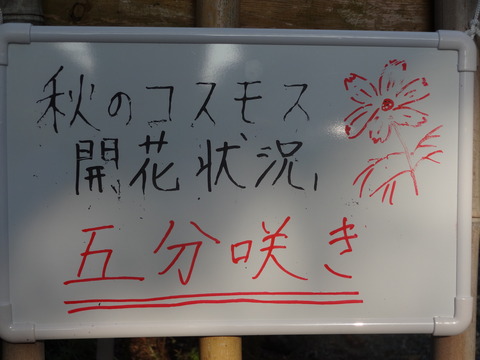 秋のコスモス
開花状況
五分咲き